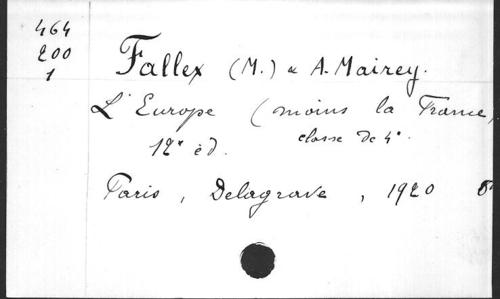 464
200
1
Fallex (M.) & A. Mairey.
L'Europe (moins la France,
classe de 4e
12e éd.
Paris, Delagrave, 1920